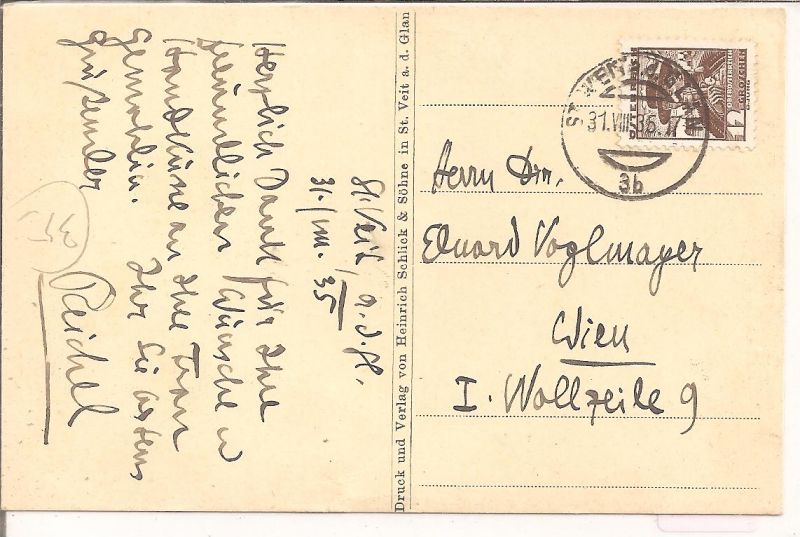 St. Veit / a. d. Gl.
31. / VIII. 35
Herzlich Dank für Ihre
freundlichen Wünsche u
Handküsse an Ihre Frau
Gemahlin. Ihr Sie bestens
grüßender
Reichel
Druck und Verlag von Heinrich Schlick & Söhne in St. Veit a. d. Glan
ST. VEIT a.d. GLAN
31.VIII.35.17
3b
OESTERREICH
GROSCHEN
Herrn Dr.
Eduard Voglmayer
Wien
I. Wollzeile 9